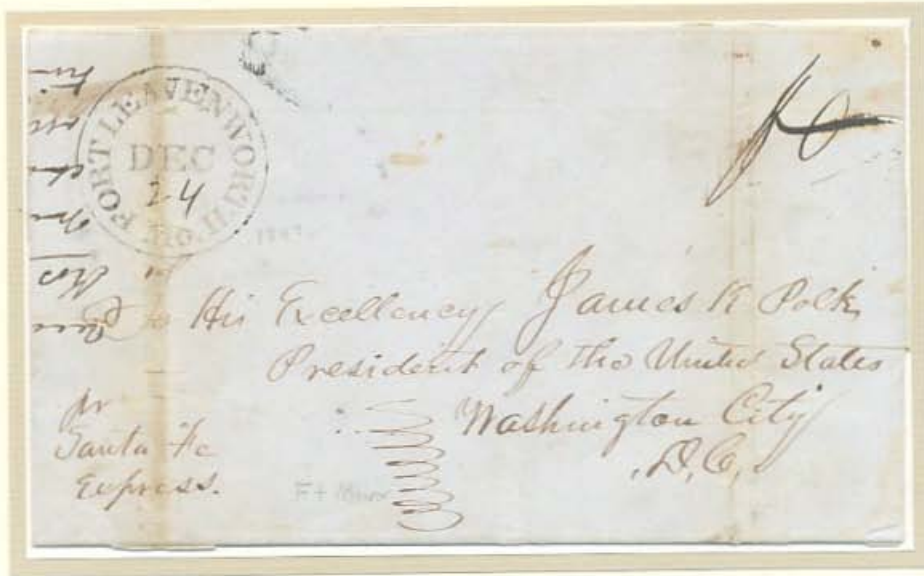 FORT LEAVENWORTH Mo.
DEC
24
10
His Excellency James K Polk
President of the United States
Washington City
D.C.
pr
Santa Fe
Express.